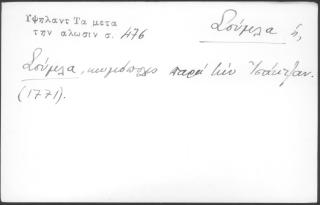 Υψηλαντ Τα μετα
την αλωσιν σ. 476
Σούμελα ἡ,
Σούμελα, κωμόπολις παρά τὴν Ἰσάκτζαν.
(1771).